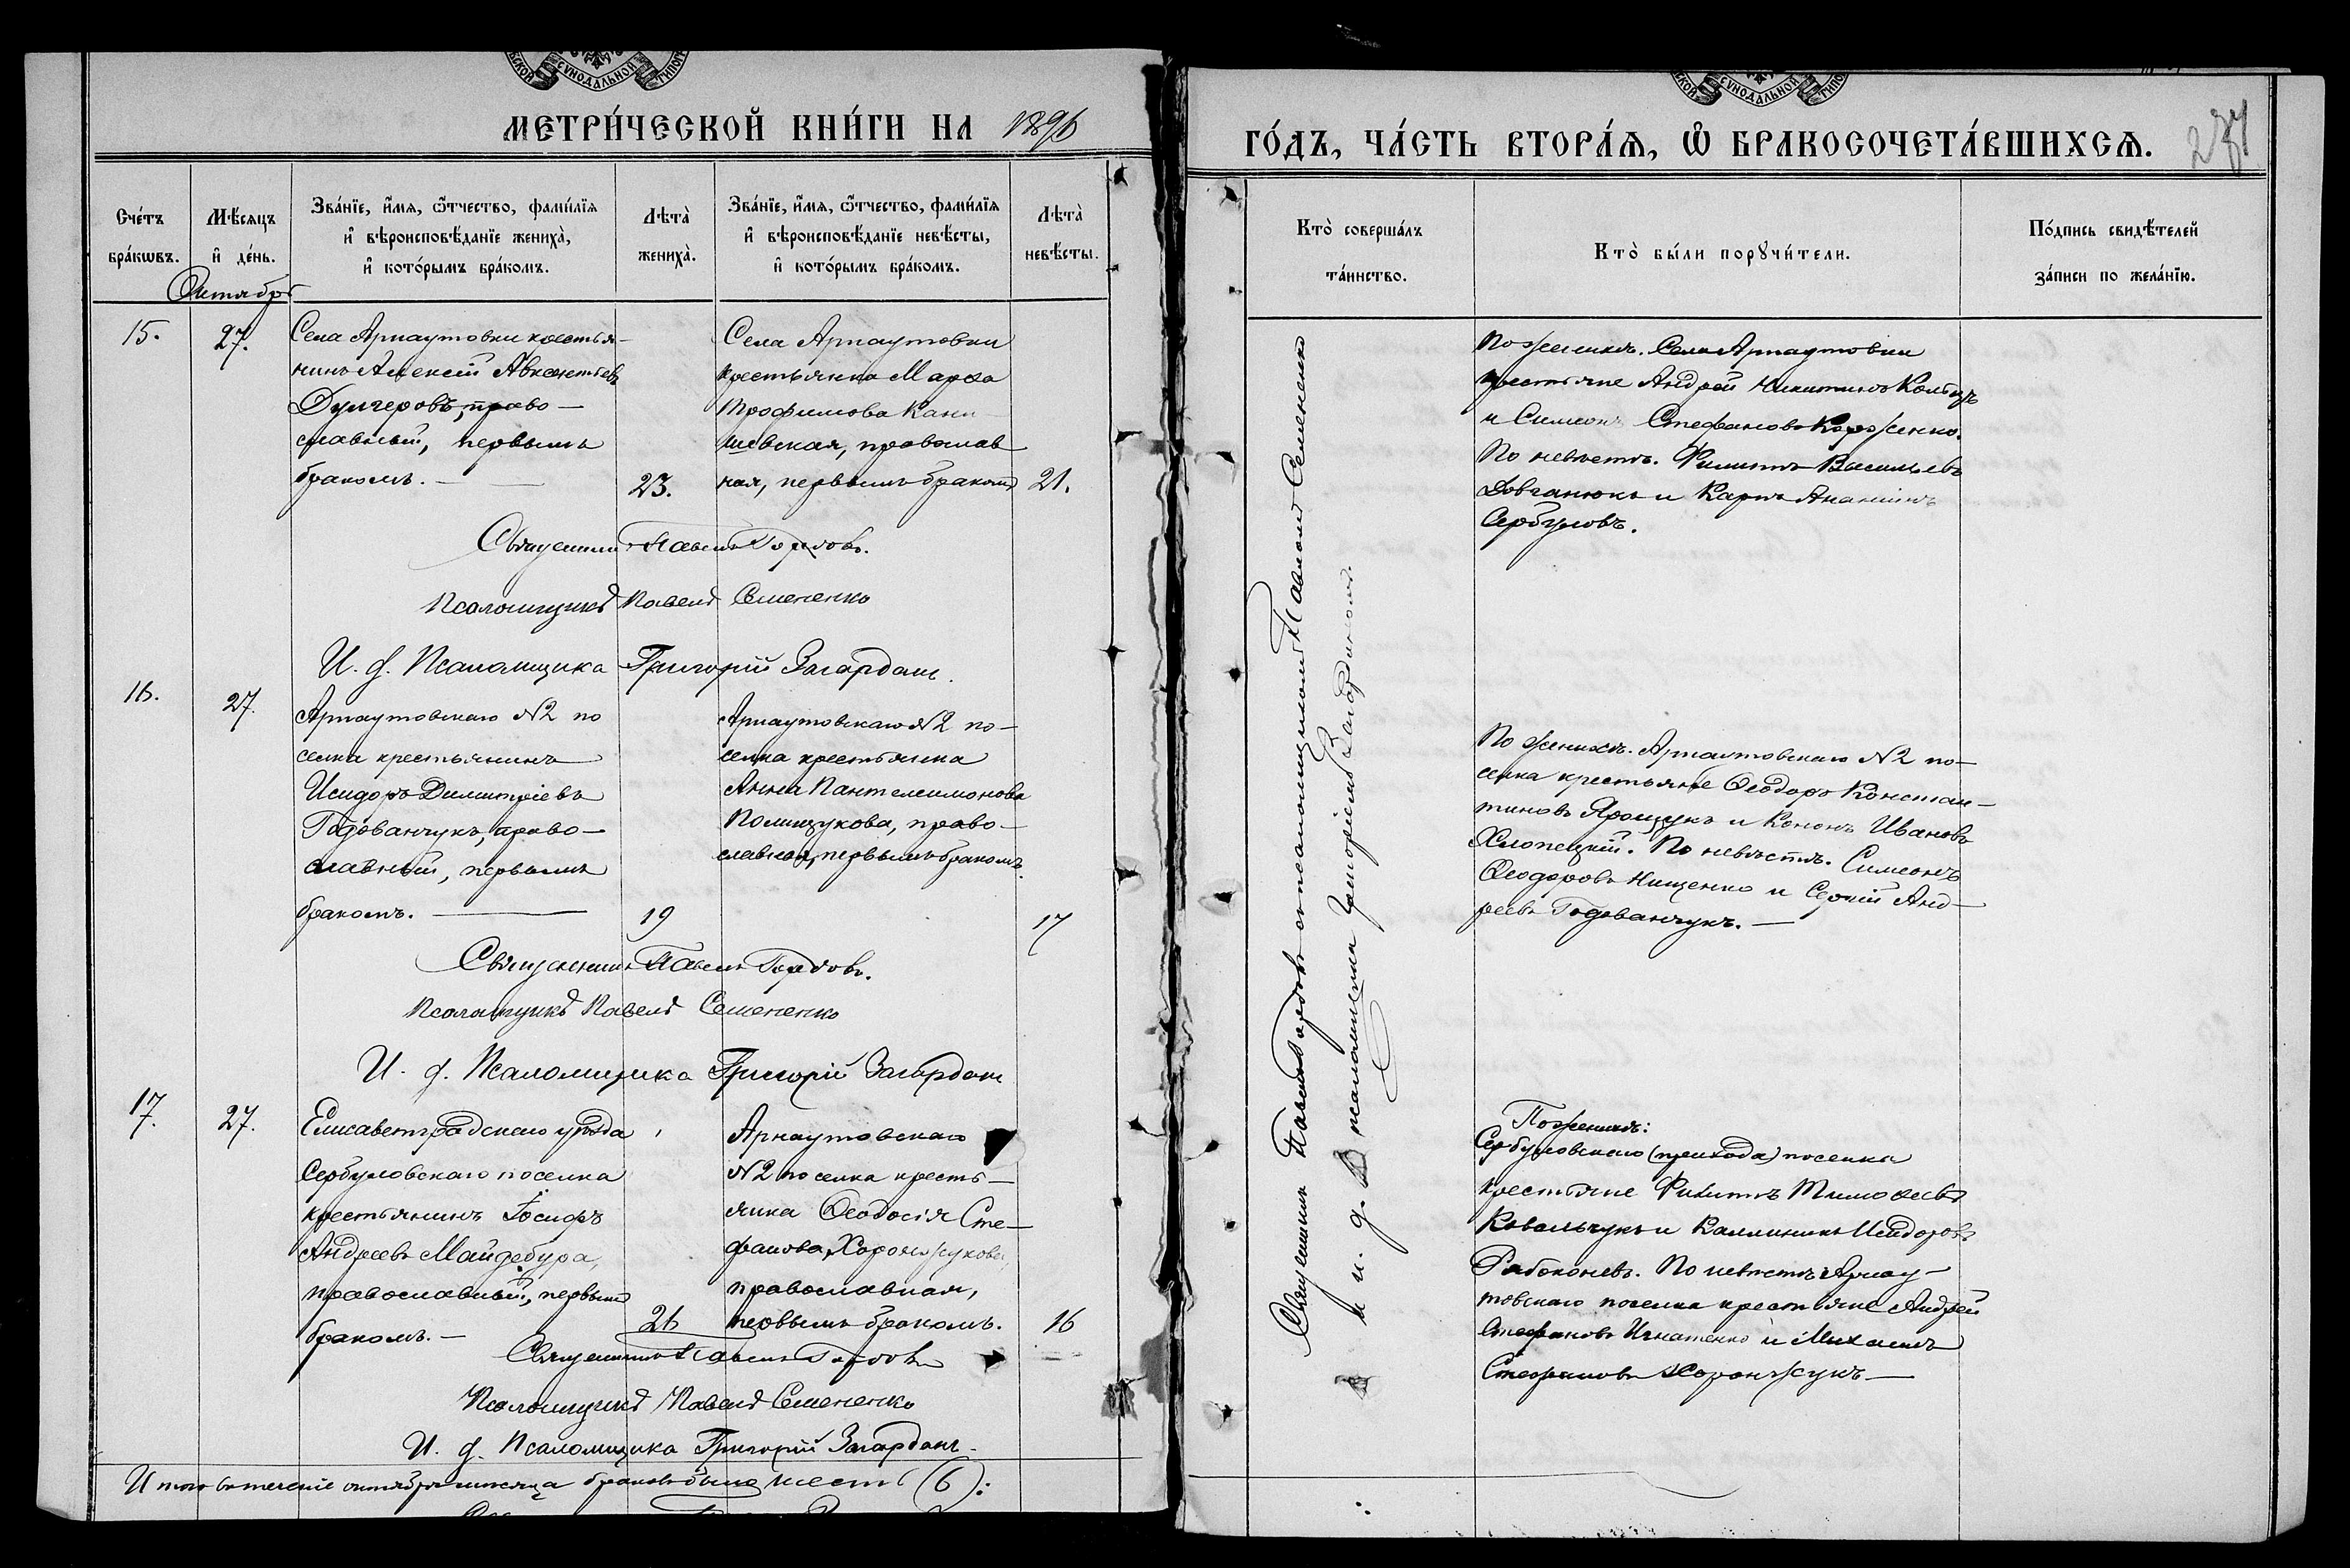 МЕТРИ́ЧЕСКОЙ КНИ́ГИ НА 1896
Сче́тъ бра́кѡвъ.
Мѣ́сяцъ и҆ де́нь.
Зва́нїе, и҆́мя, ѻ҆́тчество, фами́лїя и҆ вѣроисповѣ́данїе жениха̀, и҆ кото́рымъ бра́комъ.
Лѣта̀ жениха̀.
Зва́нїе, и҆́мя, ѻ҆́тчество, фами́лїя и҆ вѣроисповѣ́данїе невѣ́сты, и҆ кото́рымъ бра́комъ.
Лѣта̀ невѣ́сты.
Октябрь
15.
27.
Села Арнаутовки крестья-
нинъ Алексѣй Авксентьевъ
Дулгеровъ, право-
славный, первымъ
бракомъ.
23.
Села Арнаутовки
крестьянка Марѳа
Трофимова Кани-
шевская, православ
ная, первымъ бракомъ
21.
Священникъ Павелъ Гордовъ.
Псаломщикъ Павелъ Семененко
И. д. Псаломщика Григорій Загарданъ.
16.
27.
Арнаутовскаго №2 по
селка крестьянинъ
Исидоръ Димитріевъ
Годованчукъ, право-
славный, первымъ
бракомъ.
19
Арнаутовскаго №2 по-
селка крестьянка
Анна Пантелеимонова
Полищукова, право-
славная, первымъ бракомъ.
17
Священникъ Павелъ Гордовъ.
Псаломщикъ Павелъ Семененко
И. д. Псаломщика Григорій Загарданъ
17.
27.
Елисаветградскаго уѣзда
Сербуловскаго поселка
крестьянинъ Іосифъ
Андреевъ Майдебура,
православный, первымъ
бракомъ.
26
Арнаутовскаго
№2 поселка кресть-
янка Ѳеодосія Сте-
фанова Хоронжукова
православная,
первымъ бракомъ.
16
Священникъ Павелъ Гордовъ
Псаломщикъ Павелъ Семененко
И. д. Псаломщика Григорій Загарданъ
Итого въ теченіе октября мѣсяца браковъ было шесть (6):
ГО́ДЪ, ЧА́СТЬ ВТОРА́Я, Ѡ҆ БРАКОСОЧЕТА́ВШИХСЯ.
Кто̀ соверша́лъ та́инство.
Кто̀ бы́ли порꙋчи́тели.
По́дпись свидѣ́телей за́писи по жела́нїю.
Священникъ Павелъ Гордовъ съ псаломщикомъ Павломъ Семененко
и и. д. псаломщика Григоріемъ Загарданомъ.
По женихѣ. Села Арнаутовки
крестьяне Андрей Никитинъ
и Симеонъ Стефановъ Корженко.
По невѣстѣ. Филиппъ Васильевъ
Довганюкъ и Карпъ Ананіинъ
Сербуловъ.
По женихѣ. Арнаутовскаго №2 по-
селка крестьяне Ѳеодоръ Констан-
тиновъ Ярощукъ и Кононъ Ивановъ
Хлопецкій. По невѣстѣ. Симеонъ
Ѳеодоровъ Нищенко и Сергій Анд-
реевъ Годованчукъ.
По женихѣ:
Сербуловскаго (прихода) поселка
крестьяне Филиппъ Тимоѳеевъ
Ковальчукъ и Каллиникъ Исидоровъ
Рабоконевъ. По невѣстѣ Арнау-
товскаго поселка крестьяне Андрей
Стефановъ Игнатенко и Михаилъ
Стефановъ Хоронжукъ